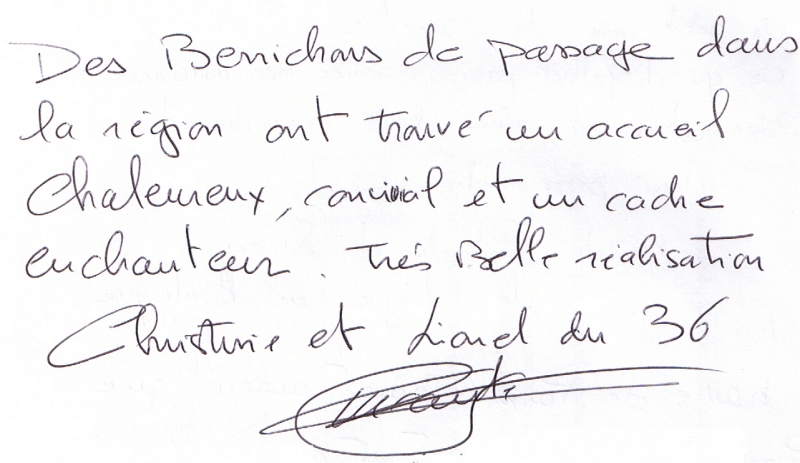 Des Berrichons de passage dans
la région ont trouvé un accueil
Chaleureux, convivial et un cadre
enchanteur. Très Belle réalisation
Christine et Lionel du 36